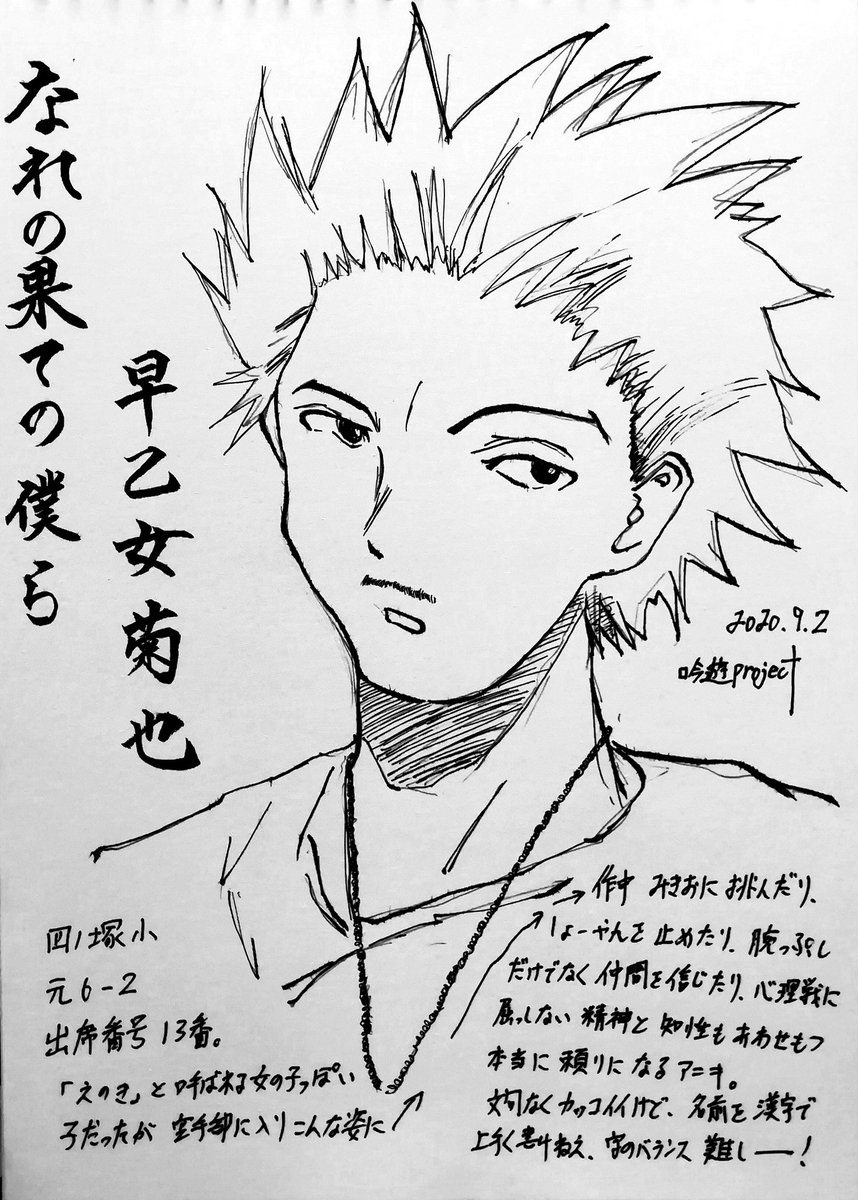 なれの果ての僕ら
早乙女菊也
2020.9.2
吟遊project
四ノ塚小
元6-2
出席番号13番。
「えのき」と呼ばれる女の子っぽい
子だったが 空手部に入りこんな姿に
作中 みきおに挑んだり、
しょーやんを止めたり、腕っぷし
だけでなく仲間を信じたり、心理戦に
屈っしない精神と知性もあわせもつ
本当に頼りになるアニキ。
文句なくカッコイイけど、名前を漢字で
上手く書けねえ、字のバランス難しーー!